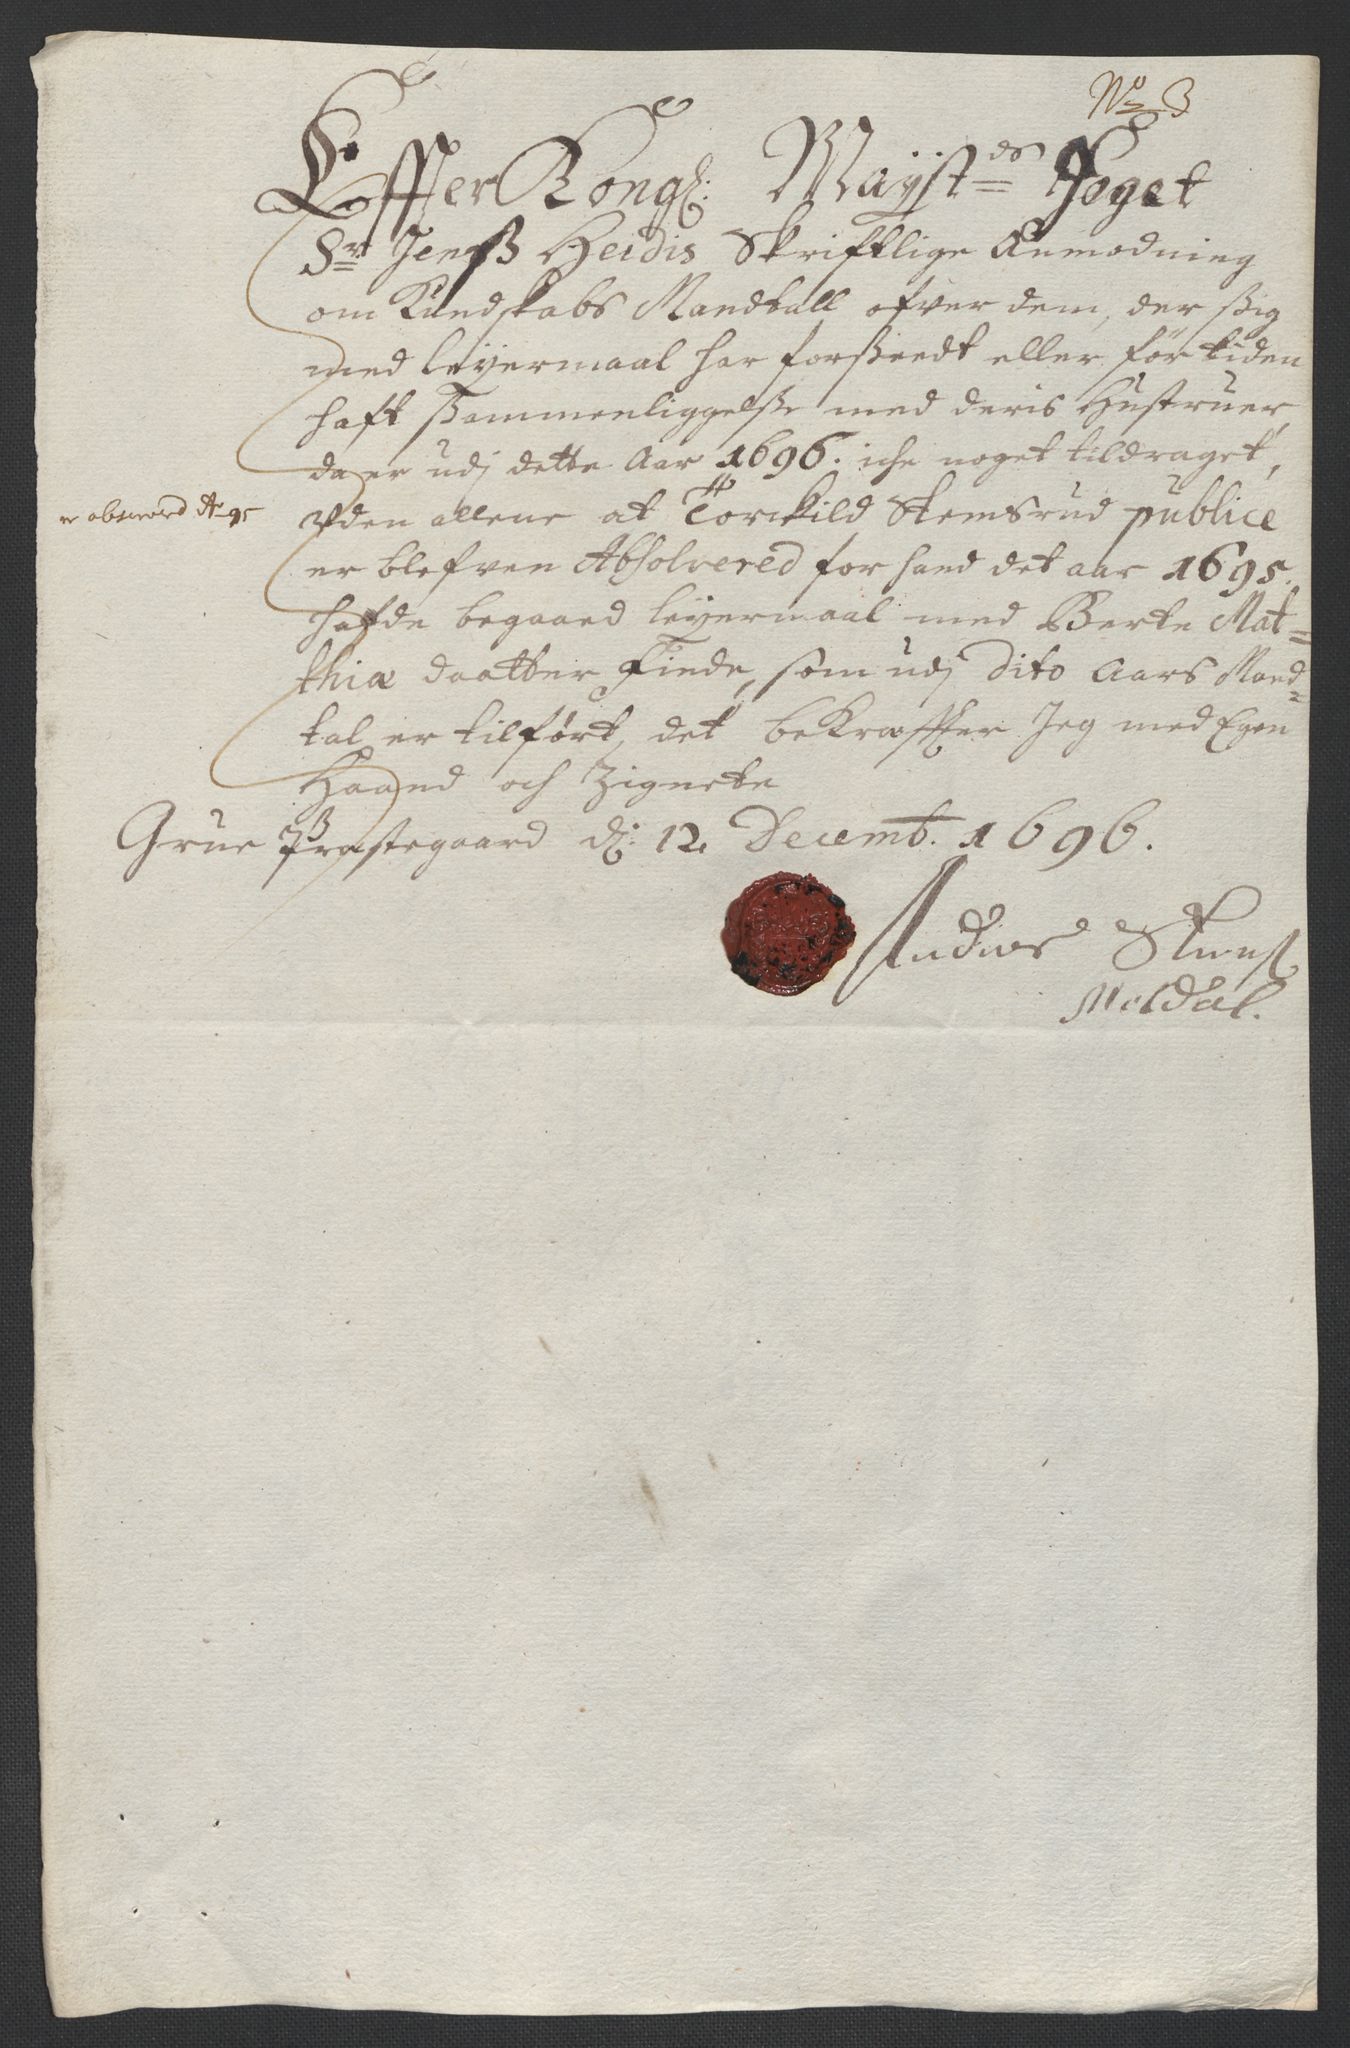 No 3
Effter Kongl: Mayst:ds Foget
Sr Jenß Heidis Skrifftlige Anmodning
om Kundskabs Mandtall ofver dem, der ßig
med leyermaal har forßeedt eller før tiden
hafft ßammenliggelße med deris Hustruer,
da er udj dette Aar 1696. iche noget tildraget,
Uden allene at Torckild Stemsrud publice
er blefven Absolvered for hand det aar 1695.
hafde begaaed leyermaal med Berte Mat=
thiæ daatter Finde, som udj Dito Aars Mand=
tal er tilført, det bekræffter Jeg med Egen
Haand och Zignete
er observerd Ao 95
Grue Præstegaard d: 12 Decemb. 1696.
Andreas
Meldal.